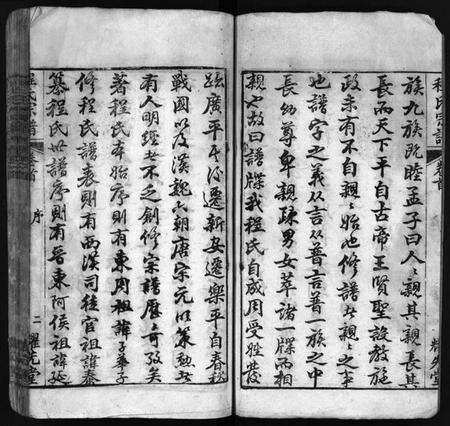 程氏宗譜
卷首
耀先堂
族九族既睦孟子曰人人親其親長其
長而天下平自古帝王賢聖設教施
政未有不自親親始也修譜者親親之事
也譜字之義以言以普言普一族之中
長幼尊卑親疎男女萃諸一牒而相
親也故曰譜牒我程氏自成周受姓發
廣平氏後遷新安遷樂平自春秋
戰國以及漢魏六朝唐宋元以策勲者
有人明經者不乏創修宗譜歷歷可攷矣
著程氏本始序則有東周祖諱子華子
修程氏譜表則有西漢司徒官祖諱泰
纂程氏世譜序則有晉東阿侯祖諱延
程氏宗譜
卷首
序
二
耀先堂